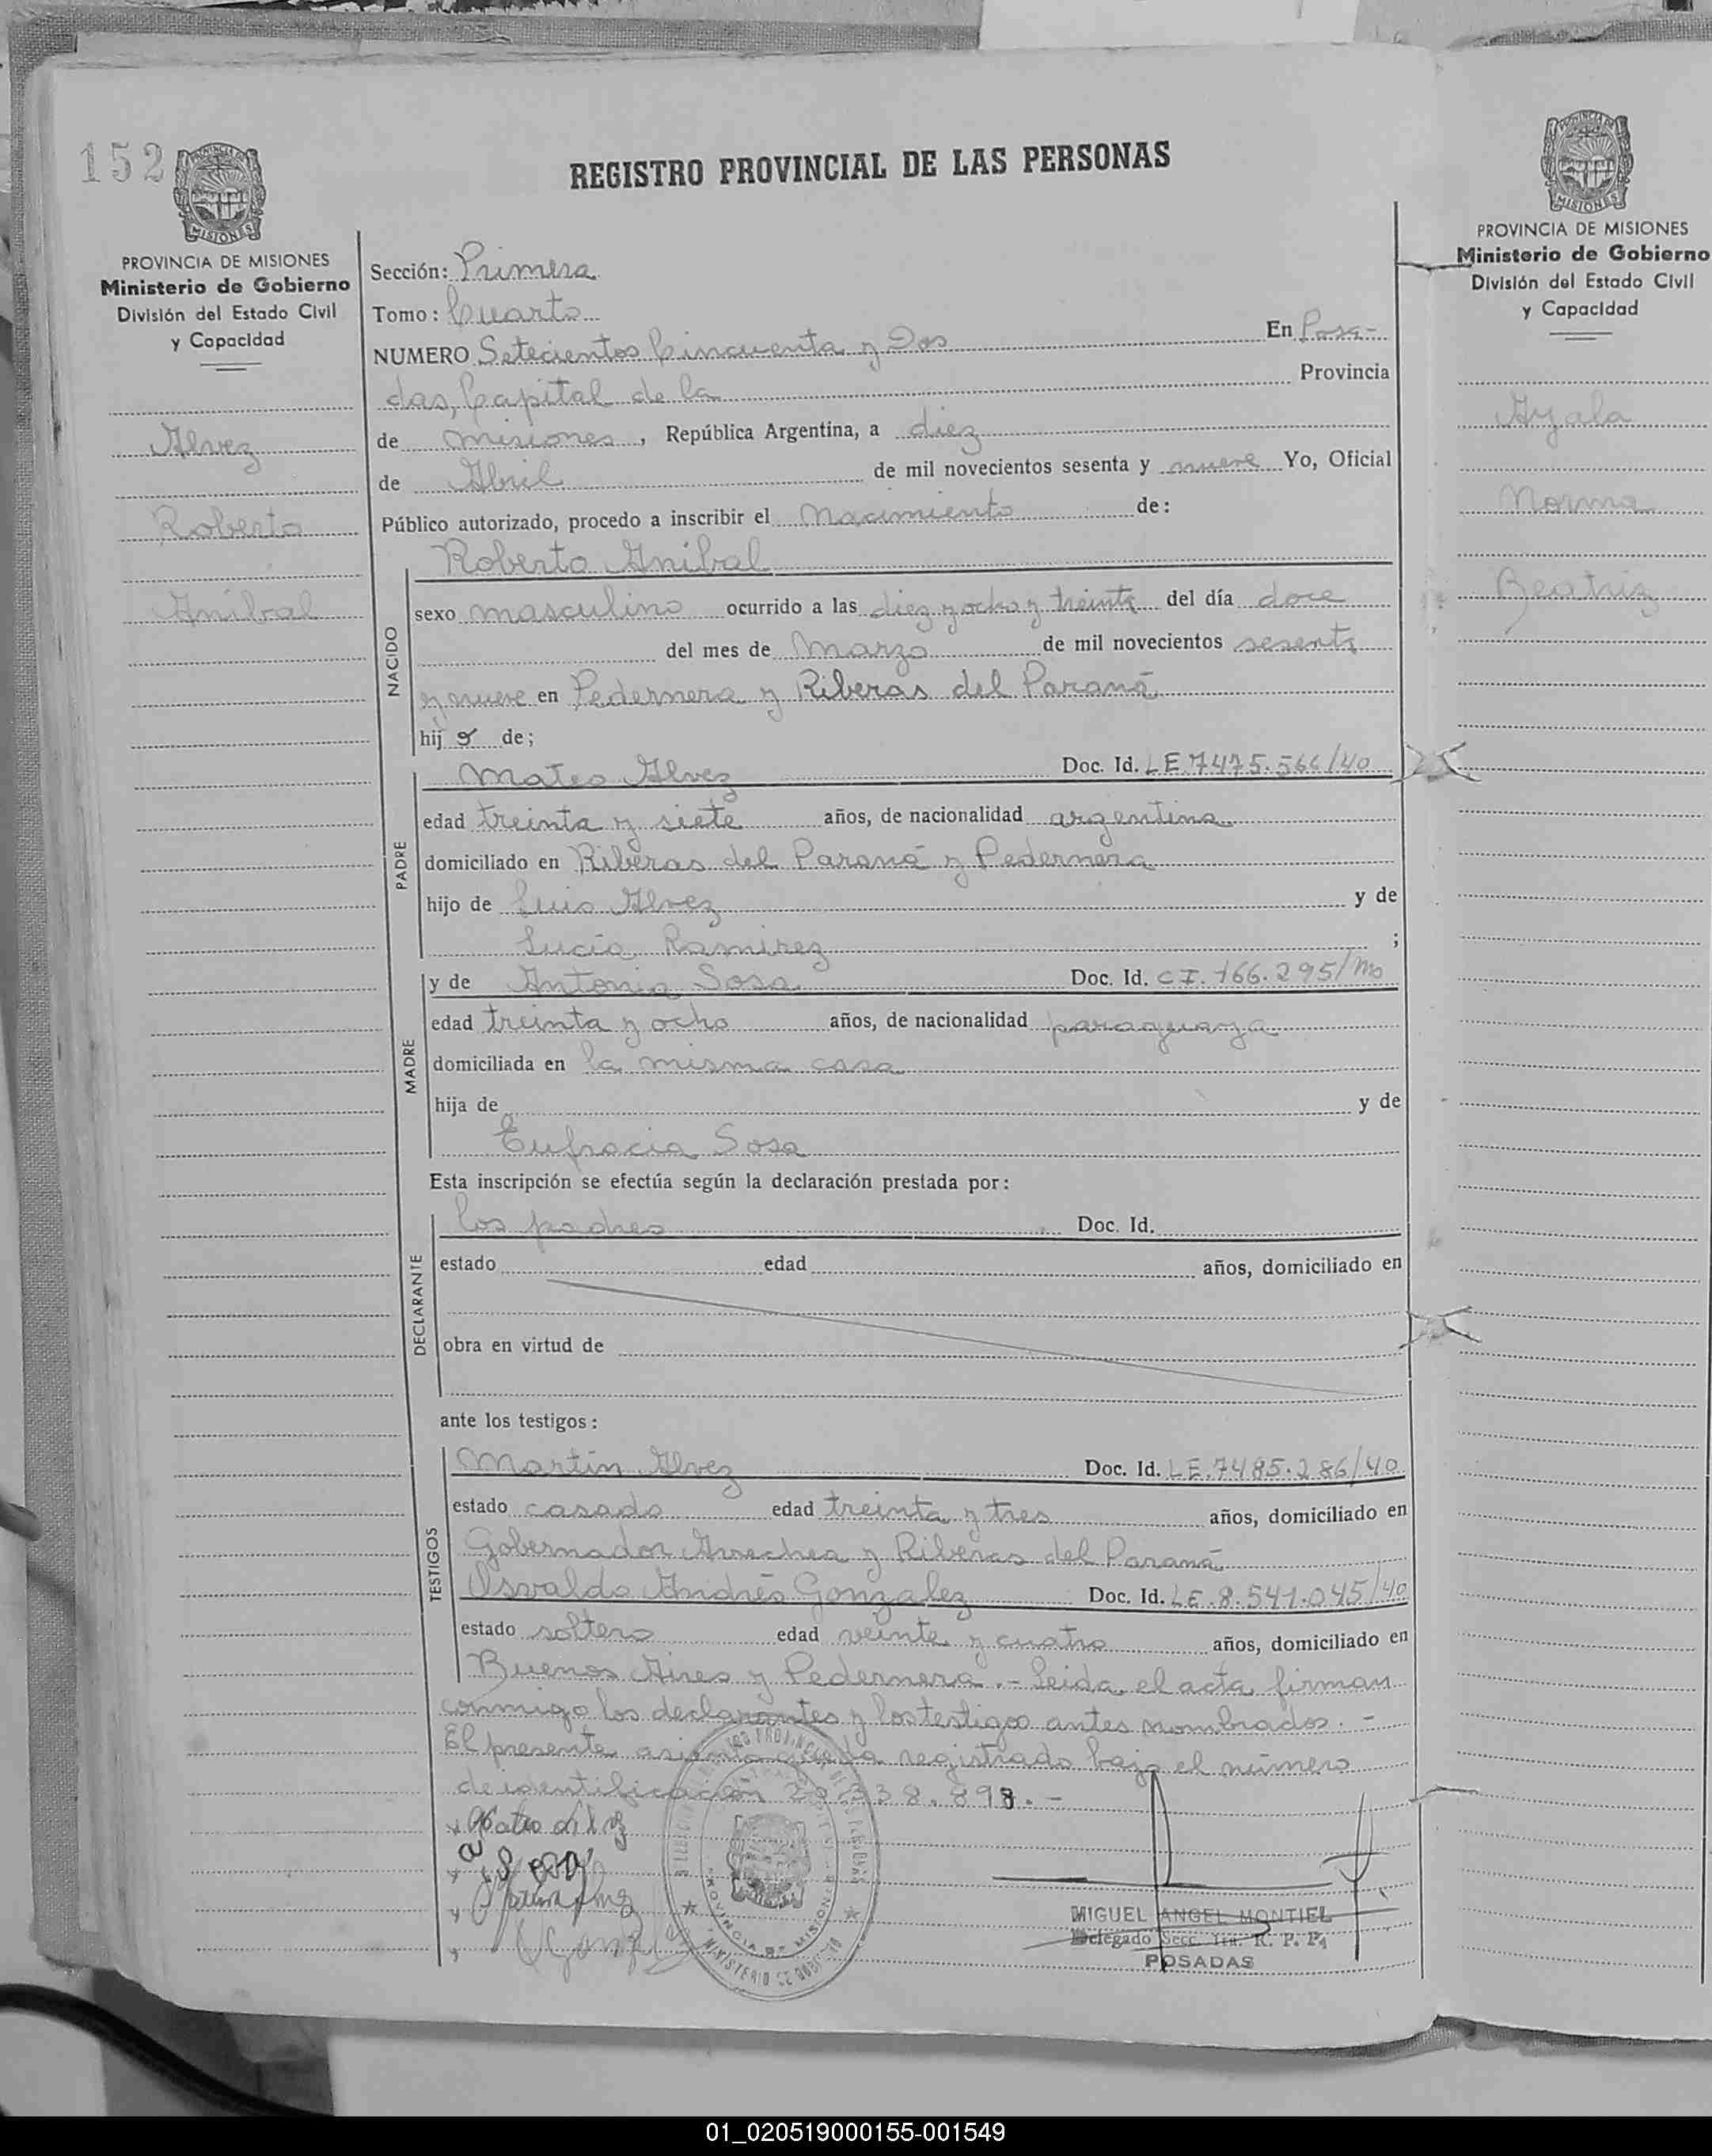 152
REGISTRO PROVINCIAL DE LAS PERSONAS
PROVINCIA DE MISIONES
MISIONES
PROVINCIA DE MISIONES
Ministerio de Gobierno
División del Estado Civil
y Capacidad
Alvez
Roberto
Anibal
Sección: Primera
Tomo: Cuarto
NUMERO Setecientos Cincuenta y Dos En Posa-
das, Capital de la Provincia
de Misiones, República Argentina, a diez
de Abril de mil novecientos sesenta y nueve Yo, Oficial
Público autorizado, procedo a inscribir el Nacimiento de:
NACIDO
Roberto Anibal
sexo masculino ocurrido a las diez y ocho y treinta del día doce
del mes de Marzo de mil novecientos sesenta
y nueve en Pedernera y Riberas del Paraná
hijo de;
PADRE
Mateo Alvez Doc. Id. LE.7475.566/40
edad treinta y siete años, de nacionalidad argentina
domiciliado en Riberas del Paraná y Pedernera
hijo de Luis Alvez y de
Lucía Ramirez ;
MADRE
y de Antonia Sosa Doc. Id. CI.166.295/Mo
edad treinta y ocho años, de nacionalidad paraguaya
domiciliada en la misma casa
hija de y de
Eufracia Sosa
Esta inscripción se efectúa según la declaración prestada por:
DECLARANTE
los padres Doc. Id.
estado edad años, domiciliado en
obra en virtud de
ante los testigos:
TESTIGOS
Martín Alvez Doc. Id. LE.7485.286/40
estado casado edad treinta y tres años, domiciliado en
Gobernador Arrechea y Riberas del Paraná
Osvaldo Andrés Gonzalez Doc. Id. LE.8.541.045/40
estado soltero edad veinte y cuatro años, domiciliado en
Buenos Aires y Pedernera.- Leida el acta firman
conmigo los declarantes y los testigos antes nombrados.-
El presente asiento queda registrado bajo el número
de identificación 20.338.898.-
MINISTERIO DE GOBIERNO
PROVINCIA DE MISIONES
MIGUEL ANGEL MONTIEL
Delegado Secc. 1ra. R. P. P.
POSADAS
PROVINCIA DE
MISIONES
PROVINCIA DE MISIONES
Ministerio de Gobierno
División del Estado Civil
y Capacidad
Ayala
Norma
Beatriz
01_020519000155-001549